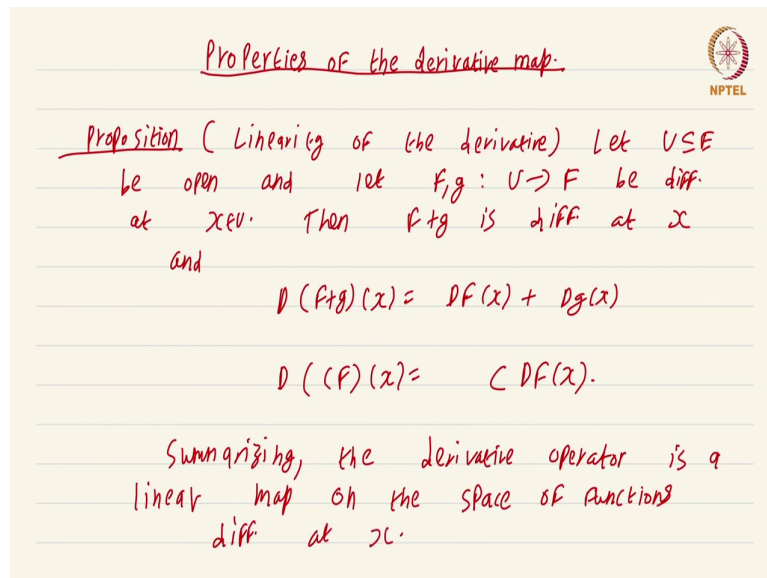 Properties of the derivative map.
NPTEL
Proposition (Linearity of the derivative) Let U ⊆ E
be open and let F, g : U → F be diff.
at x ∈ U. Then F + g is diff at x
and
D (F+g) (x) = DF(x) + Dg(x)
D (CF) (x) = C DF(x).
Summarizing, the derivative operator is a
linear map on the space of functions
diff. at x.